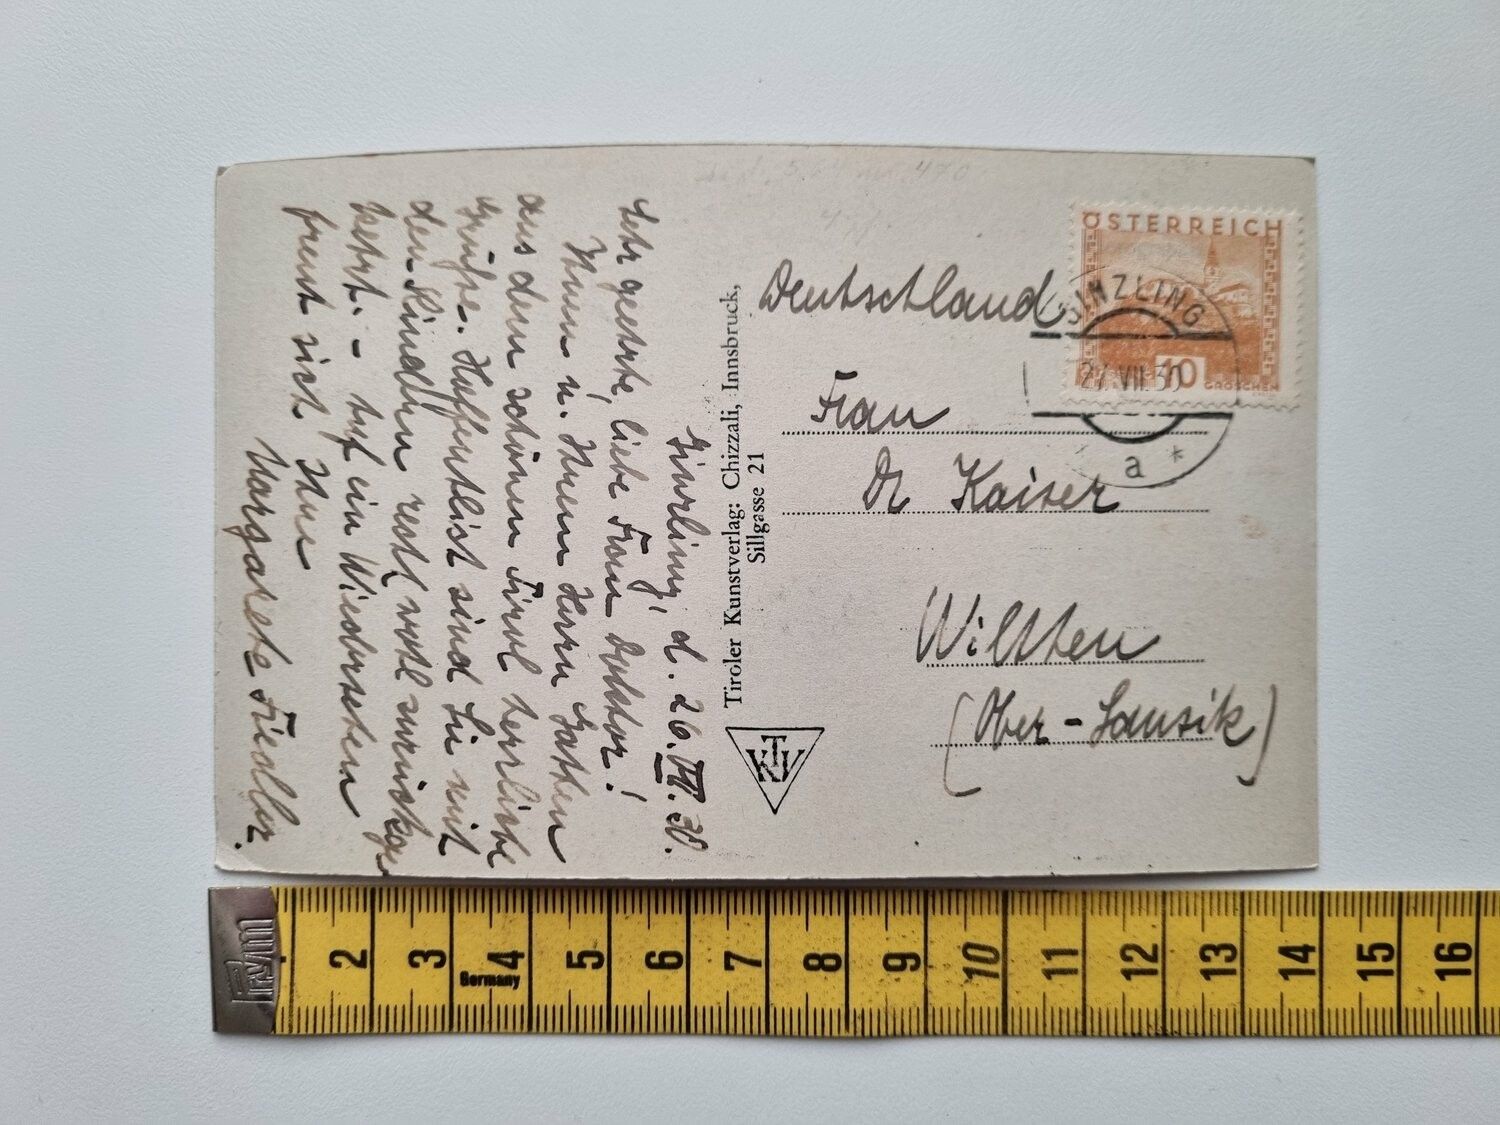 Ginzling, d. 26.VII.30.
Sehr geehrte, liebe Frau Doktor!
Ihnen u. Ihrem Herrn Gatten
aus dem schönen Tirol herzliche
Grüße. Hoffentlich sind Sie mit
den Kindern recht wohl zurückge
kehrt. - Auf ein Wiedersehen
freut sich Ihre
Margarete Fiedler.
Tiroler Kunstverlag: Chizzali, Innsbruck,
Sillgasse 21
TKV
ÖSTERREICH
10
GROSCHEN
GINZLING
27 VII 30
a *
Deutschland
Frau
Dr Kaiser
Wilthen
(Ober-Lausitz)
Prym
Germany
2 3 4 5 6 7 8 9 10 11 12 13 14 15 16